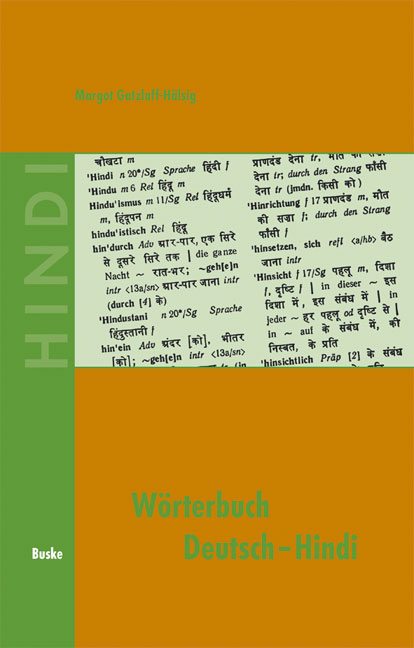 Margot Gatzlaff-Hälsig
HINDI
चौखटा m
'Hindi n 20*/Sg Sprache हिंदी f
'Hindu m 6 Rel हिंदू m
Hindu'ismus m 11/Sg Rel हिंदूधर्म
m, हिंदूपन m
hindu'istisch Rel हिंदू
hin'durch Adv आर-पार, एक सिरे
से दूसरे सिरे तक | die ganze
Nacht ~ रात-भर; ~geh[e]n
intr <13a/sn> आर-पार जाना intr
(durch [4] के)
'Hindustani n 20*/Sg Sprache
हिंदुस्तानी f
hin'ein Adv अंदर [को], भीतर
[को]; ~geh[e]n intr <13a/sn>
प्राणदंड देना tr, मौत की सज़ा
देना tr; durch den Strang फाँसी
देना tr (jmdn. किसी को)
'Hinrichtung f 17 प्राणदंड m, मौत
की सजा f; durch den Strang
फाँसी f
'hinsetzen, sich refl <a/hb> बैठ
जाना intr
'Hinsicht f 17/Sg पहलू m, दिशा
f, दृष्टि f | in dieser ~ इस
दिशा में, इस संबंध में | in
jeder ~ हर पहलू od दृष्टि से |
in ~ auf के संबंध में, की
निस्बत, के प्रति
'hinsichtlich Präp [2] के संबंध
Wörterbuch
Deutsch–Hindi
Buske